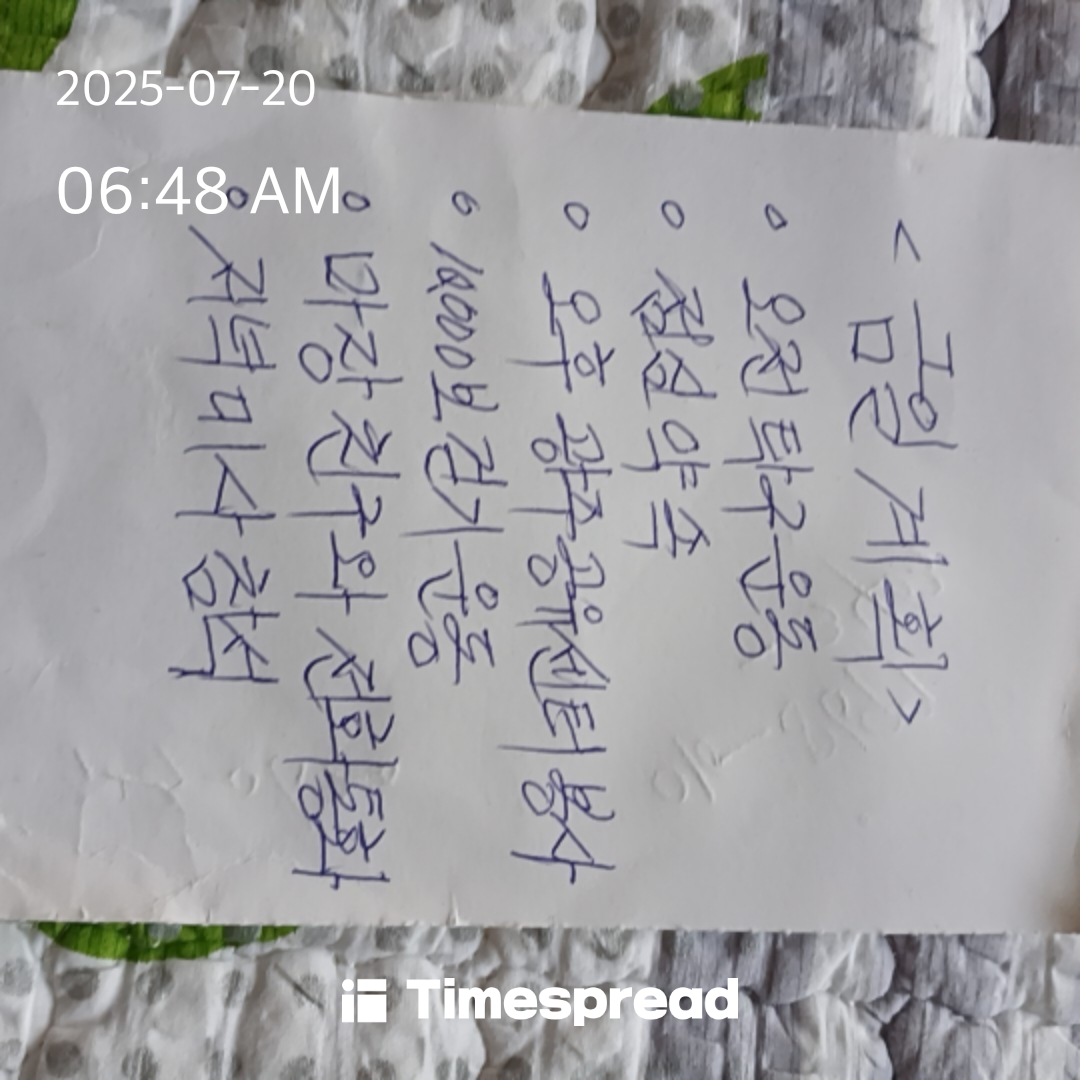 2025-07-20
06:48 AM
<금일 계획>
o 오전 탁구운동
o 점심 약속
o 오후 광주공유센터 봉사
o 10,000보 걷기 운동
o 마강 친구와 전화통화
o 저녁미사 참석
Timespread